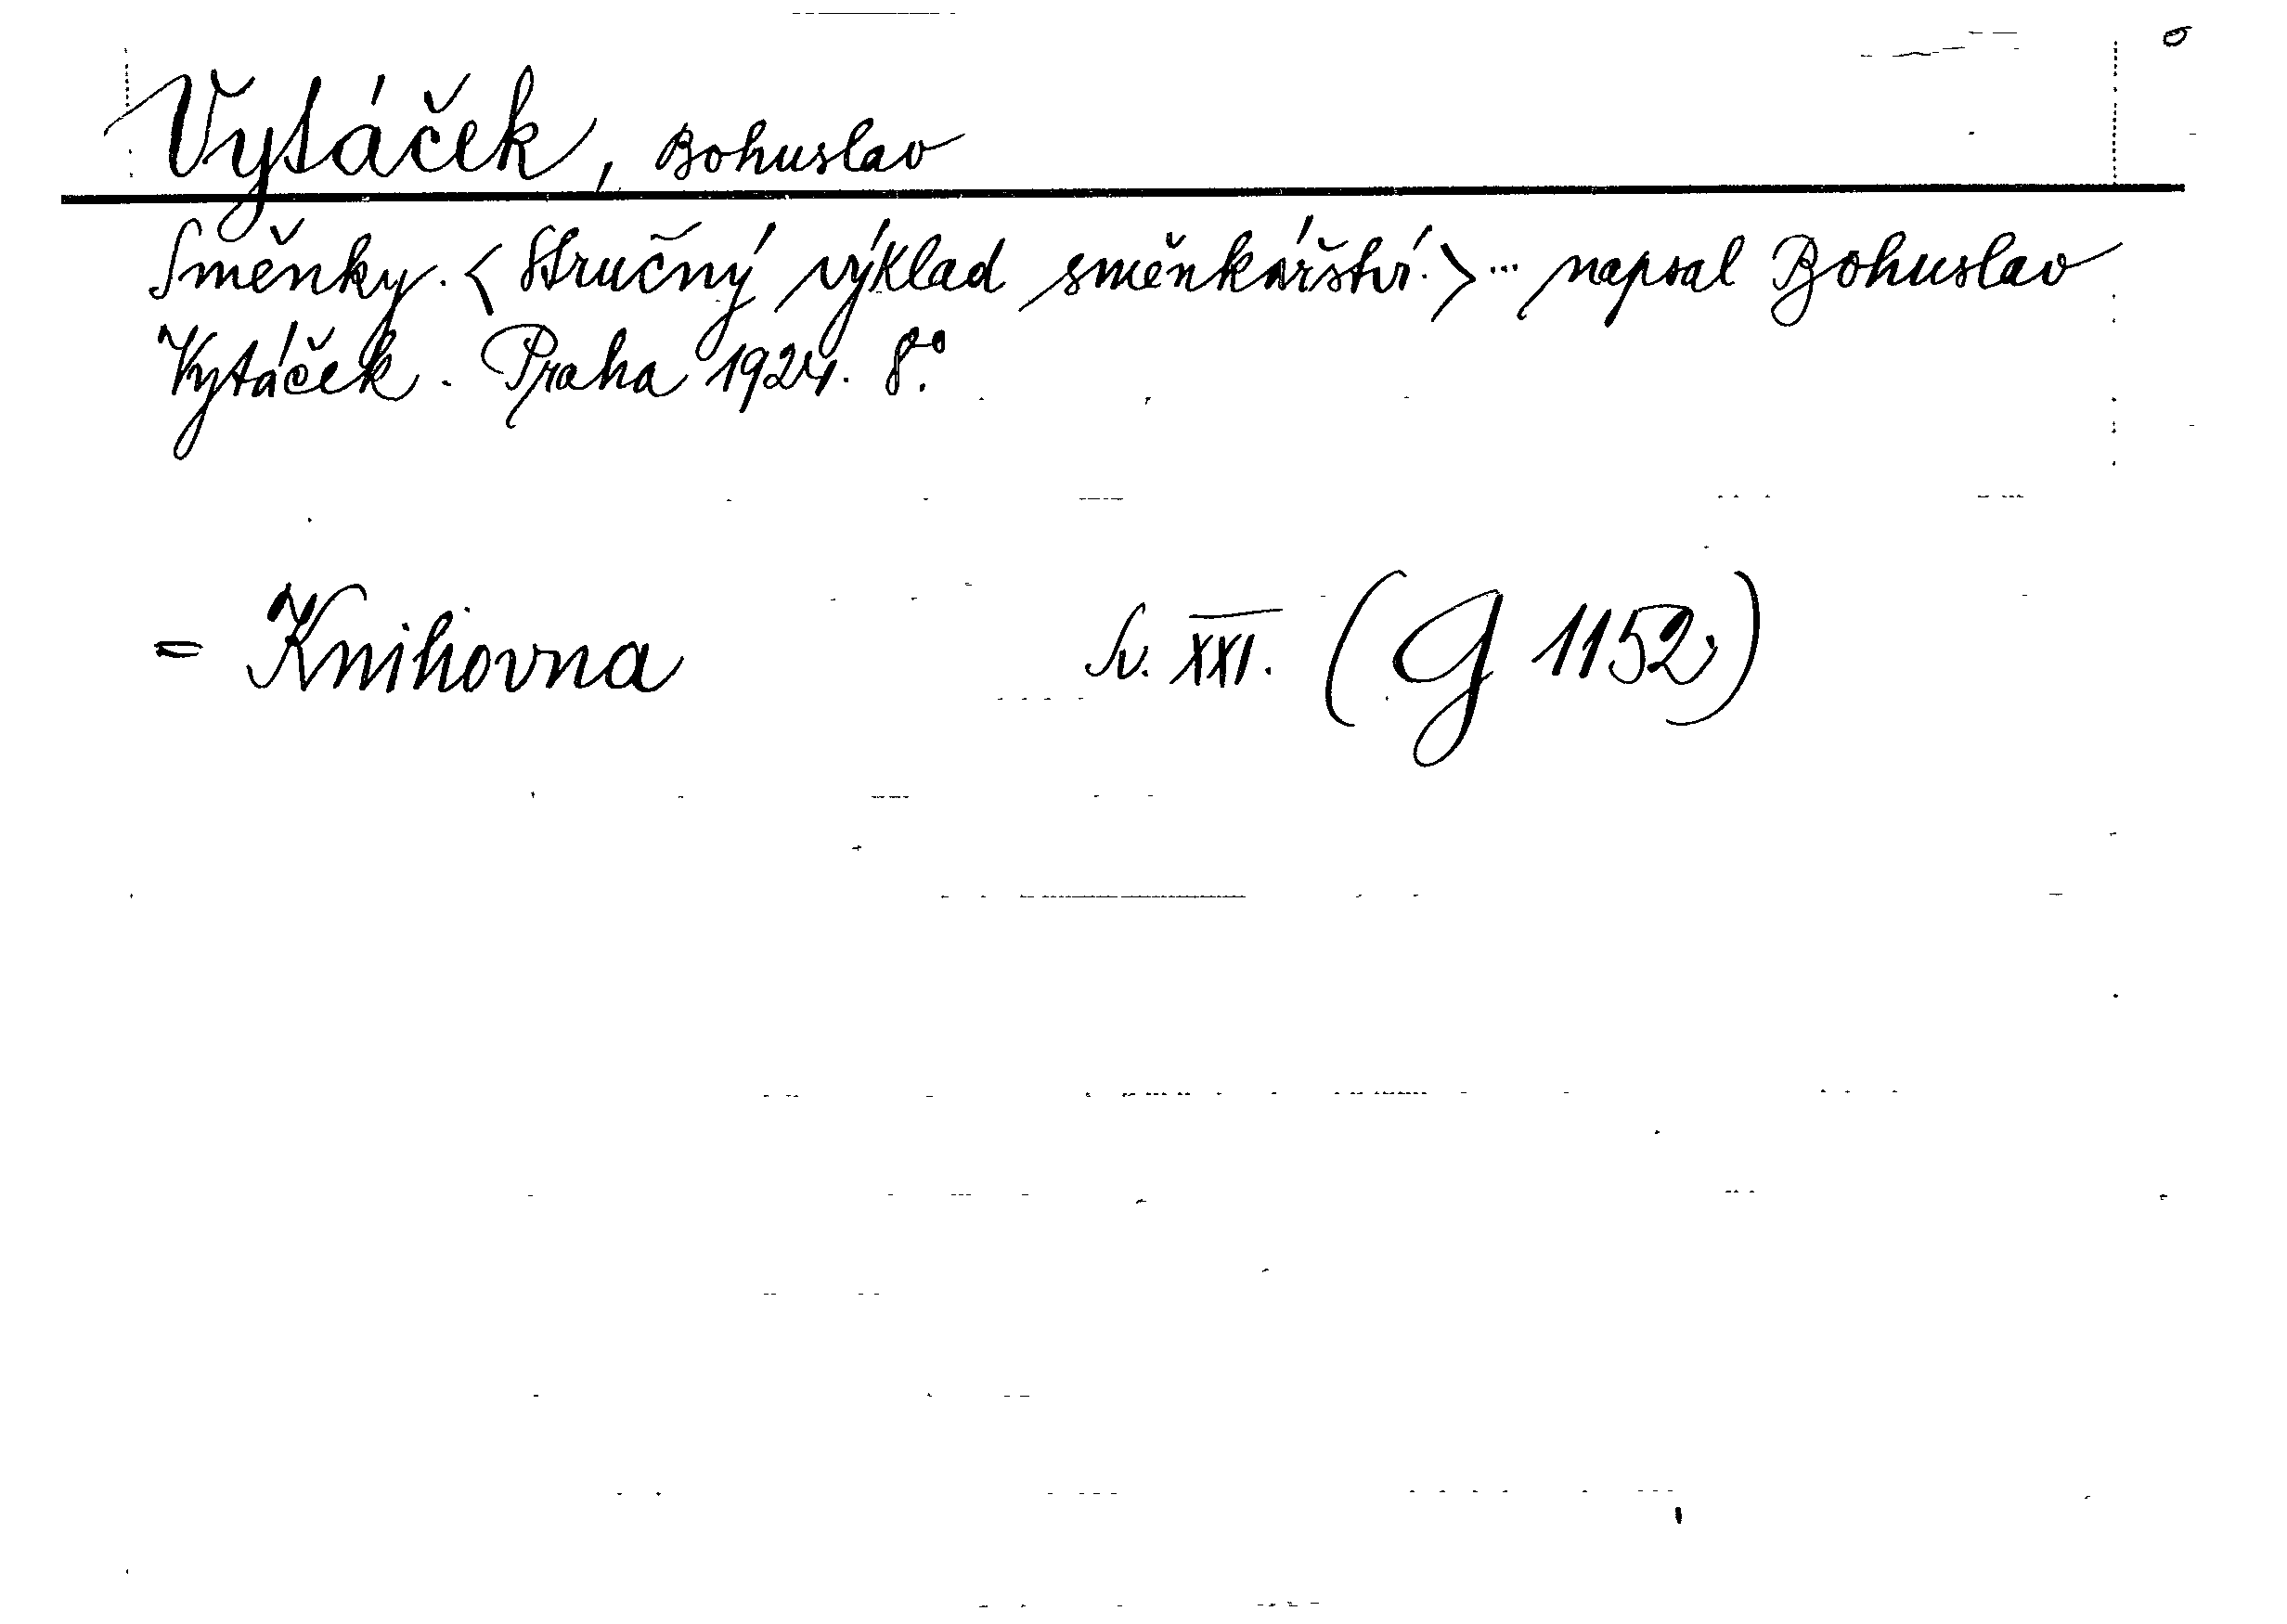 Vytáček, Bohuslav
Směnky. < Stručný výklad směnkářství. > ... napsal Bohuslav
Vytáček. Praha 1924. 8°.
= Knihovna Sv. XXI. (G 1152.)